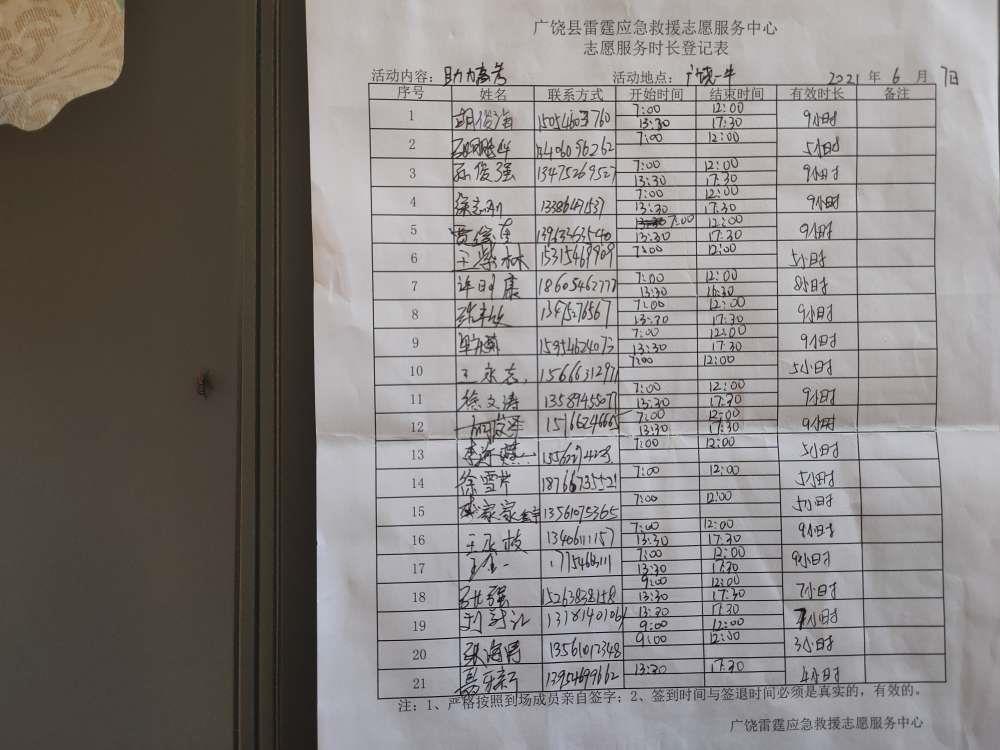 广饶县雷霆应急救援志愿服务中心
志愿服务时长登记表
活动内容：助力高考 活动地点：广饶一中 2021 年 6 月 7日
序号 姓名 联系方式 开始时间 结束时间 有效时长 备注
1 胡俊海 7:00 12:00 9小时
13:30 17:30
2 7:00 12:00 5小时
3 孙俊强 13475269527 7:00 12:00 9小时
13:30 17:30
4 徐志刚 7:00 12:00 9小时
13:30 17:30
5 7:00 12:00 9小时
13:30 17:30
6 王荣林 15315469909 7:00 12:00 5小时
7 许时康 7:00 12:00 8小时
13:30 16:30
8 7:00 12:00 9小时
13:30 17:30
9 15954624073 7:00 12:00 9小时
13:30 17:30
10 王永志 15666312971 7:00 12:00 5小时
11 徐文涛 7:00 12:00 9小时
13:30 17:30
12 7:00 12:00 9小时
13:30 17:30
13 7:00 12:00 5小时
14 徐雪芹 18766735521 7:00 12:00 5小时
15 13561075365 7:00 12:00 5小时
16 13406111157 7:00 12:00 9小时
13:30 17:30
17 7:00 12:00 9小时
13:30 17:30
18 张强 9:00 12:00 7小时
13:30 17:30
19 13:30 17:30 7小时
9:00 12:00
20 张海霞 13561012348 9:00 12:00 3小时
21 13954699662 13:30 17:30 4小时
注：1、严格按照到场成员亲自签字；2、签到时间与签退时间必须是真实的，有效的。
广饶雷霆应急救援志愿服务中心